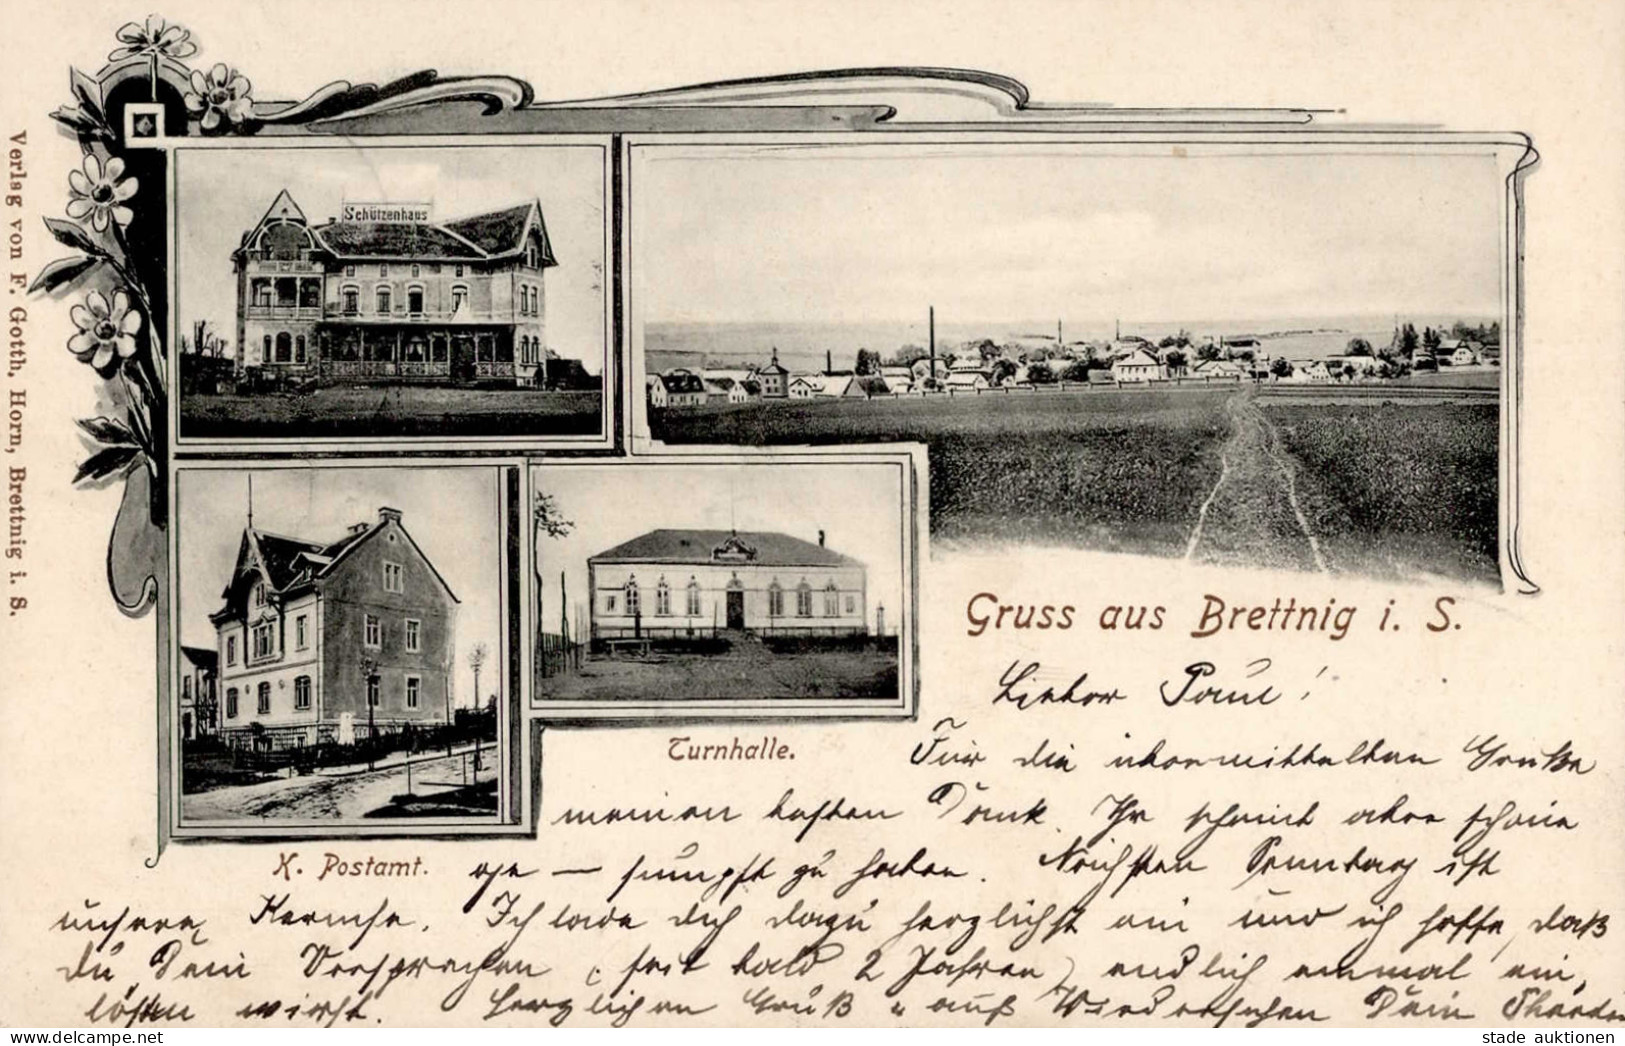 Verlag von F. Gotth. Horn, Brettnig i. S.
Schützenhaus
Gruss aus Brettnig i. S.
Turnhalle.
K. Postamt.
Lieber Paul!
Für die übermittelten Grüße
meinen besten Dank. Ihr scheint aber schöne
ge – sumpft zu haben. Nächsten Sonntag ist
unsere Kirmse. Ich lade dich dazu herzlichst ein und ich hoffe, daß
du Dein Versprechen (seit bald 2 Jahren) endlich einmal ein,
lösen wirst. Herzlichen Gruß u auf Wiedersehen Dein
stade auktionen